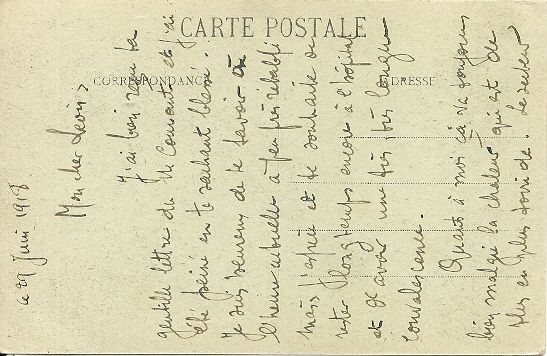 CARTE POSTALE
CORRESPONDANCE
ADRESSE
le 29 Juin 1918
Mon cher Léon,
J'ai bien reçu ta
gentille lettre du 14 Courant et j'ai
été peiné en te sachant blessé.
Je suis heureux de te savoir
l'heure actuelle à peu près rétabli
mais j'espère et te souhaite de
rester longtemps encore à l'hôpital
et d'avoir une très très longue
convalescence.
Quant à moi ça va toujours
bien malgré la chaleur qui est de
plus en plus torride. Le secteur